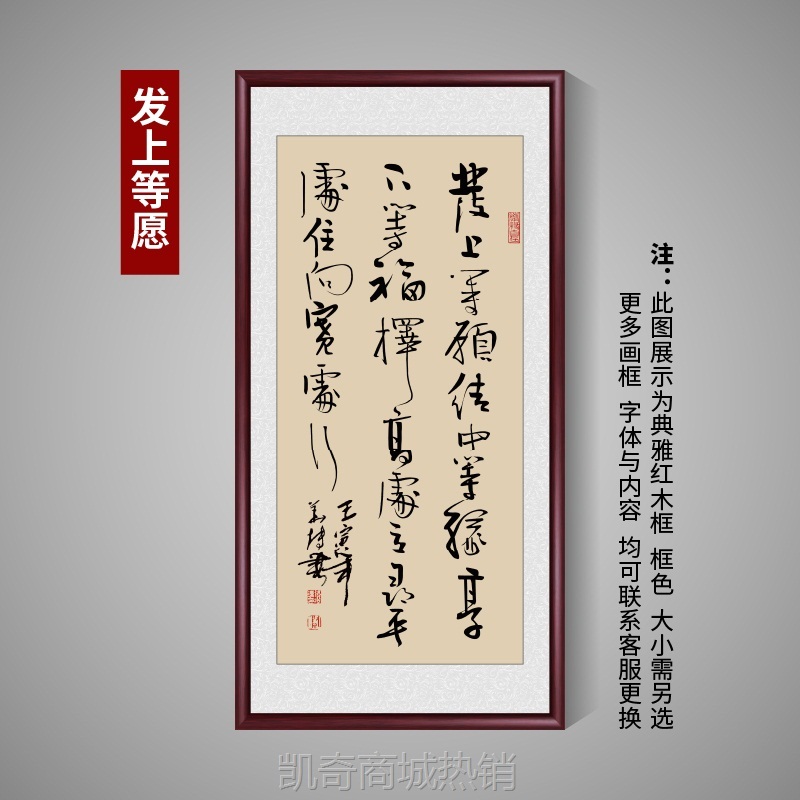 发上等愿
發上等願結中等緣享
下等福擇高處立尋平
處住向寬處行
壬寅年
注：此图展示为典雅红木框 框色 大小需另选
更多画框 字体与内容 均可联系客服更换
凯奇商城热销